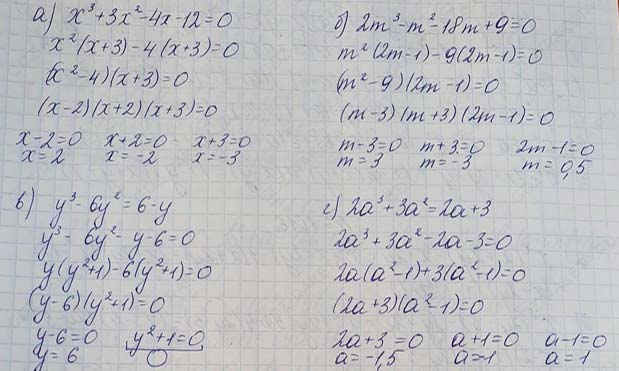 а) x³+3x²-4x-12=0
x²(x+3)-4(x+3)=0
(x²-4)(x+3)=0
(x-2)(x+2)(x+3)=0
x-2=0 x+2=0 x+3=0
x=2 x=-2 x=-3
б) 2m³-m²-18m+9=0
m²(2m-1)-9(2m-1)=0
(m²-9)(2m-1)=0
(m-3)(m+3)(2m-1)=0
m-3=0 m+3=0 2m-1=0
m=3 m=-3 m=0,5
в) y³-6y²=6-y
y³-6y²-y-6=0
y(y²+1)-6(y²+1)=0
(y-6)(y²+1)=0
y-6=0 y²+1=0
y=6 0
г) 2a³+3a²=2a+3
2a³+3a²-2a-3=0
2a(a²-1)+3(a²-1)=0
(2a+3)(a²-1)=0
2a+3=0 a+1=0 a-1=0
a=-1,5 a=-1 a=1